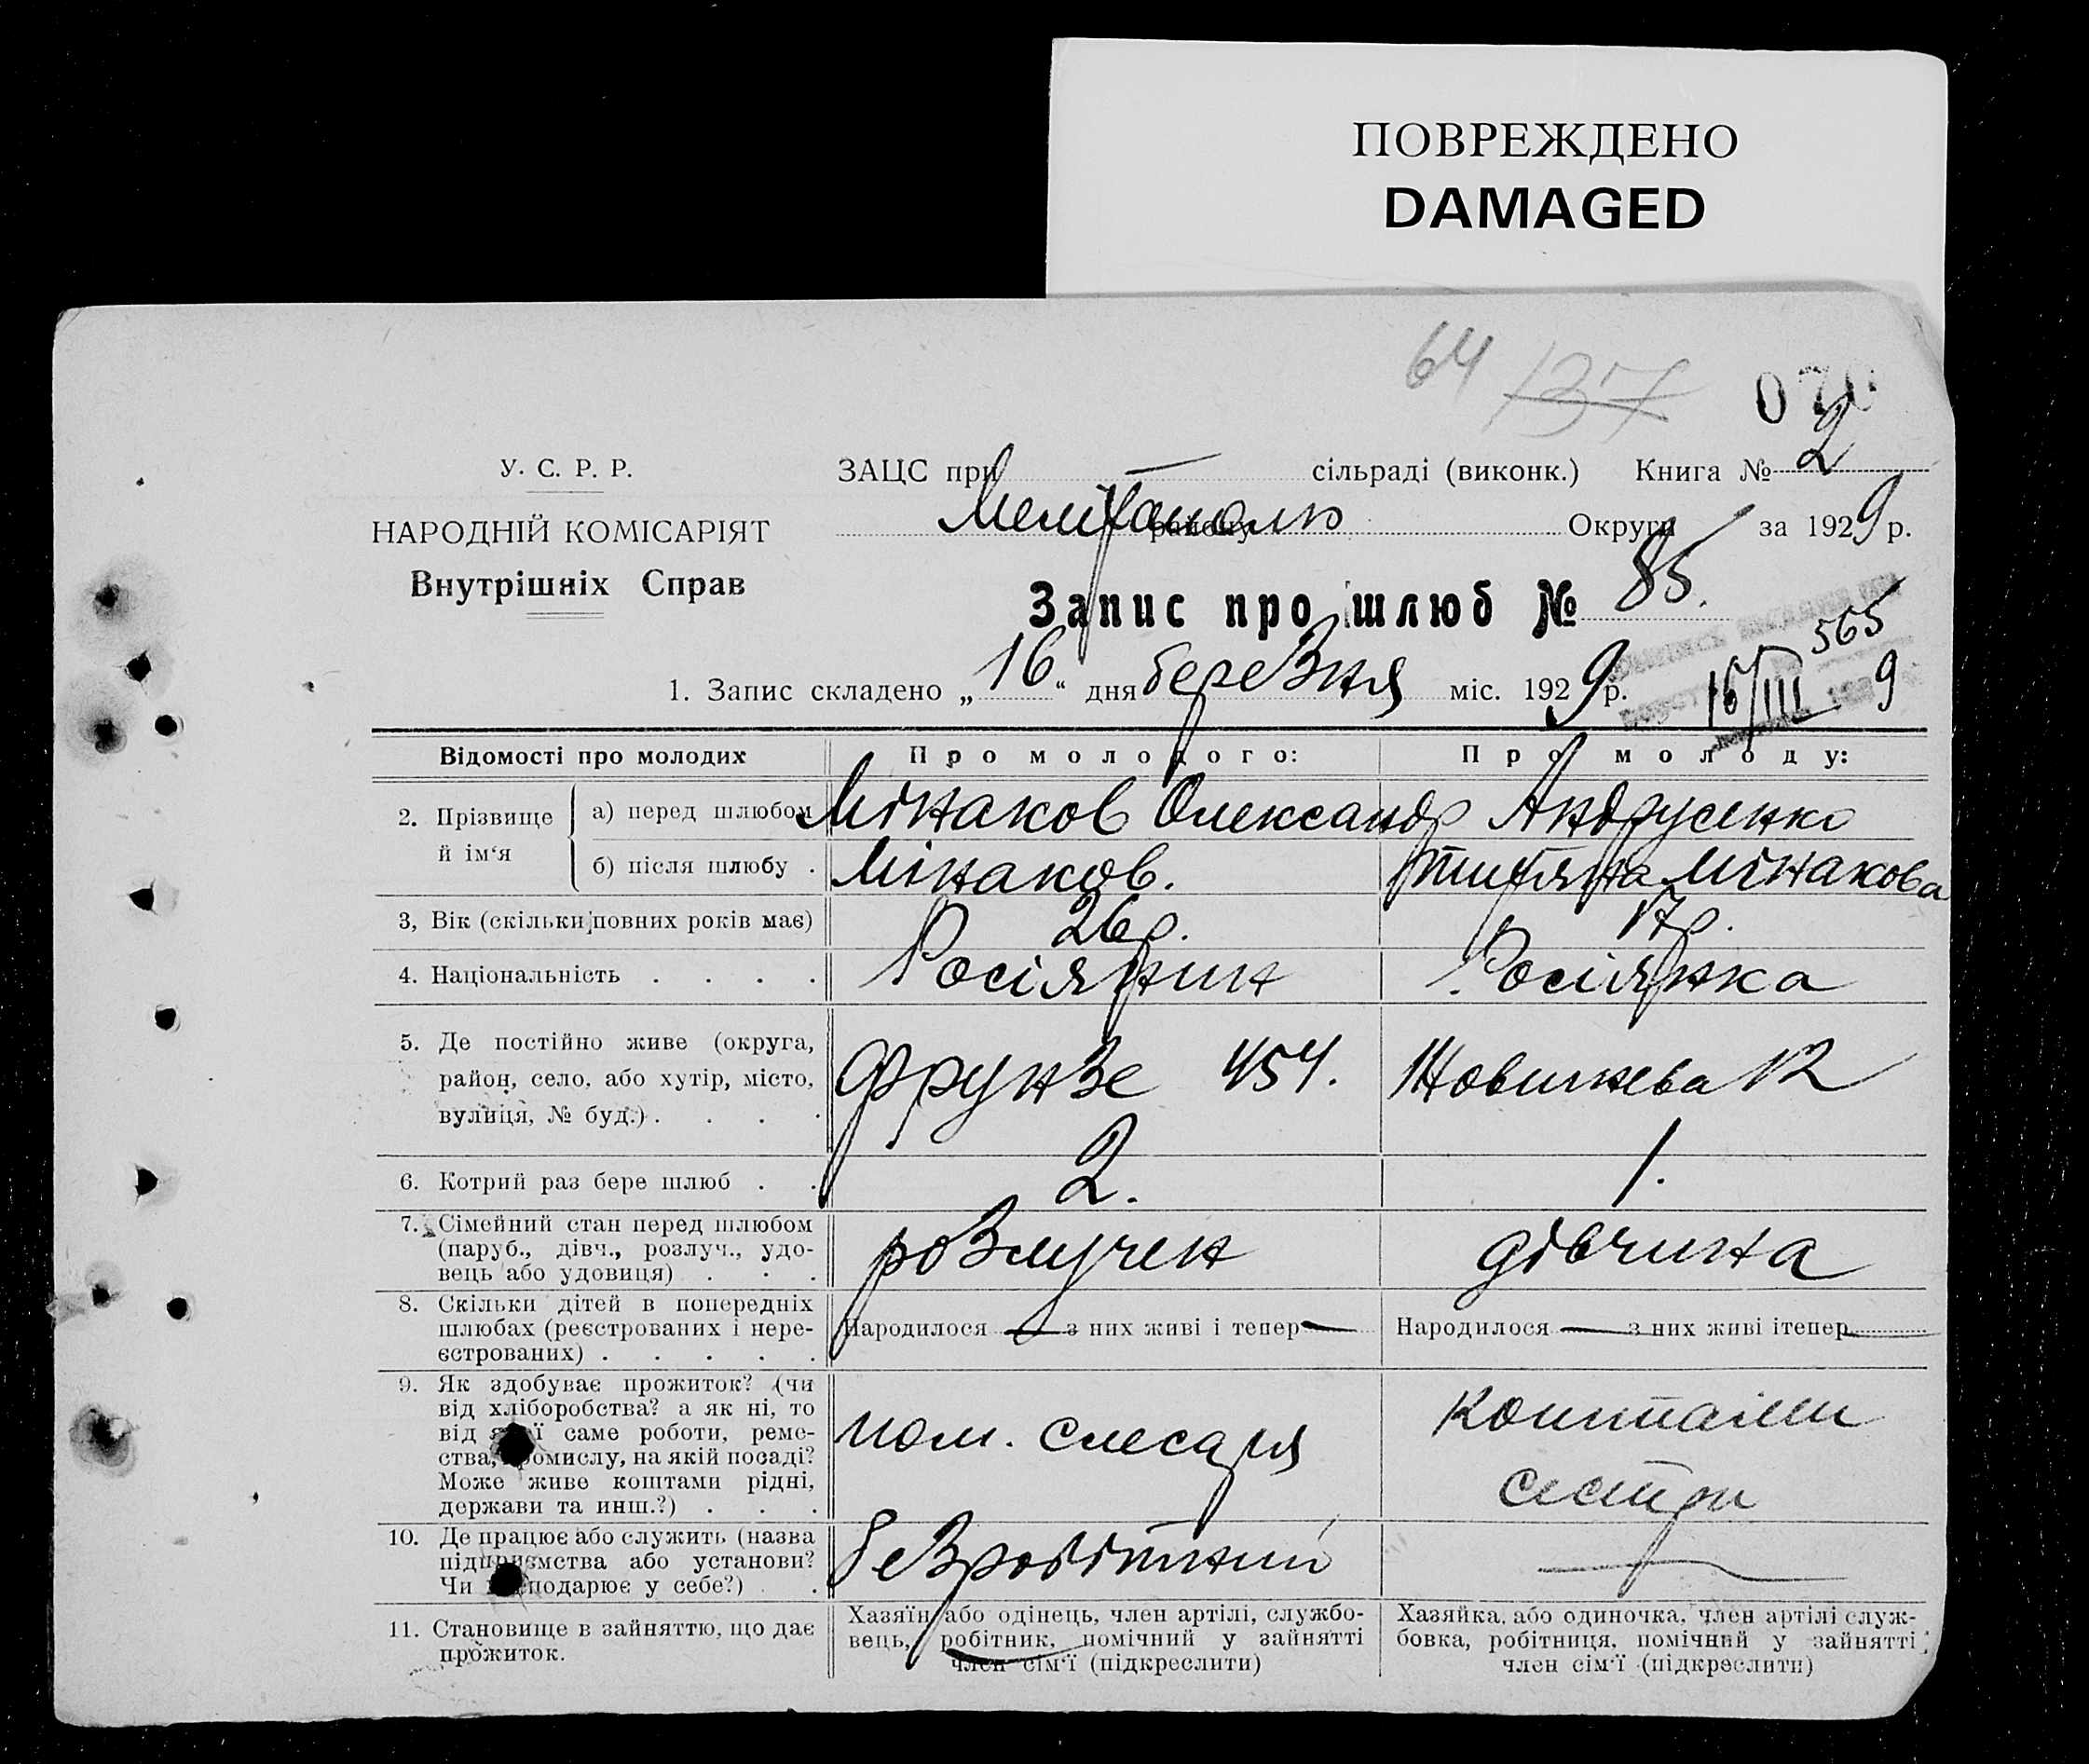 ПОВРЕЖДЕНО
DAMAGED
64 137
2
У. С. Р. Р.
ЗАЦС при сільраді (виконк.) Книга № 2
НАРОДНІЙ КОМІСАРІЯТ
Мелітополь району Округи за 1929 р.
Внутрішніх Справ
Запис про шлюб № 85.
565
1. Запис складено „16“ дня березня міс. 1929 р.
16/III 9
Відомості про молодих
Про молодого:
Про молоду:
2. Прізвище й ім‘я
а) перед шлюбом Мінаков Олександр Андрусенко
б) після шлюбу . Мінаков. Титяна Мінакова
3, Вік (скільки повних років має) 26 р. 17 р.
4. Національність . . . . Росіянин Росіянка
5. Де постійно живе (округа,
район, село, або хутір, місто,
вулиця, № буд.) . . . .
Фрунзе 454. 12
6. Котрий раз бере шлюб . . 2. 1.
7. Сімейний стан перед шлюбом
(паруб., дівч., розлуч., удо-
вець або удовиця) . . .
розлучен дівчина
8. Скільки дітей в попередніх
шлюбах (реєстрованих і нере-
єстрованих) . . . . .
Народилося — з них живі і тепер —
Народилося — з них живі ітепер —
9. Як здобуває прожиток? (чи
від хліборобства? а як ні, то
від якої саме роботи, реме-
ства, промислу, на якій посаді?
Може живе коштами рідні,
держави та инш.?) . . .
пом. слесаря
коштами
сестри
10. Де працює або служить (назва
підприємства або установи?
Чи господарює у себе?) . .
безробітний —
11. Становище в зайняттю, що дає
прожиток.
Хазяїн або одінець, член артілі, службо-
вець, робітник, помічний у зайнятті
член сім‘ї (підкреслити)
Хазяйка, або одиночка, член артілі служ-
бовка, робітниця, помічний у зайнятті
член сім‘ї (підкреслити)